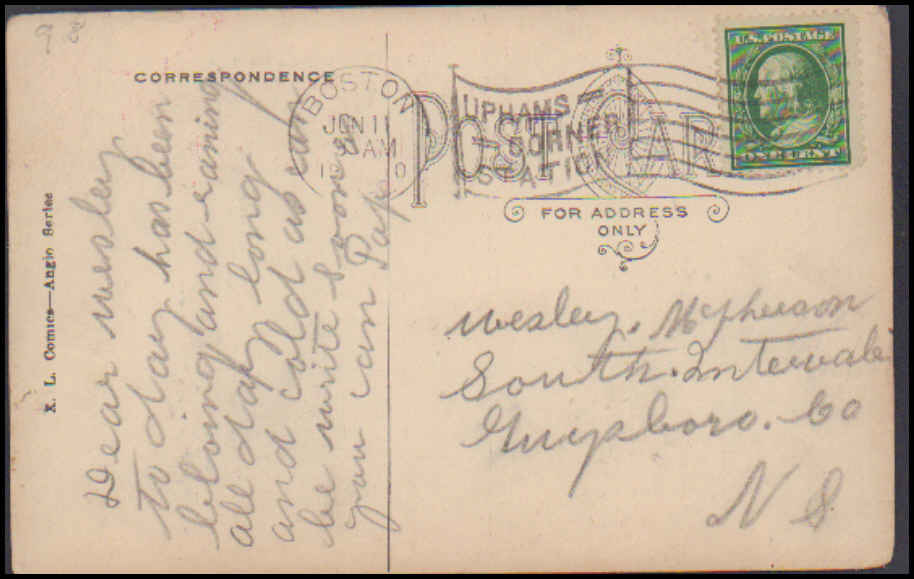 CORRESPONDENCE
BOSTON
JUN 11
AM
UPHAMS
CORNER
STATION
U.S. POSTAGE
ONE CENT
POST CARD
FOR ADDRESS
ONLY
X. L. Comics—Anglo Series
Dear Wesley
to day has been
bloing and raining
all day long
and cold as can
be write soon
you can Pap
Wesley. McPherson
South. Intervale
Guysboro. Co
N S